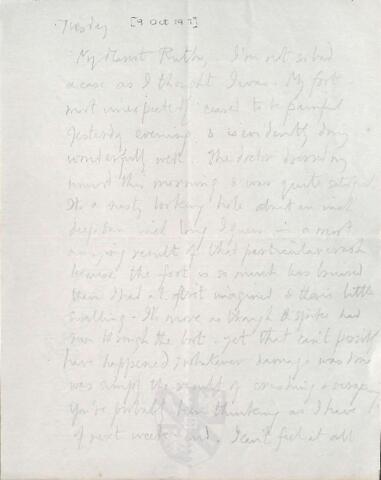 Tuesday [9 Oct 1917]
My dearest Ruth, I'm not so bad
a case as I thought I was. My foot
most unexpectedly ceased to be painful
yesterday evening & is evidently doing
wonderfully well. The doctor dressed my
wound this morning & was quite satisfied.
It's a nasty looking hole about an inch
deep & an inch long I guess in a most
annoying result of that particular crash
because the foot is so much less bruised
than I had at first imagined & there's little
swelling - It's more as though a spike had
run through the boot - yet that can't possibly
have happened; whatever damage was done
was simply the result of crushing & scraping
You've probably been thinking as I have
of next week end. I can't feel at all